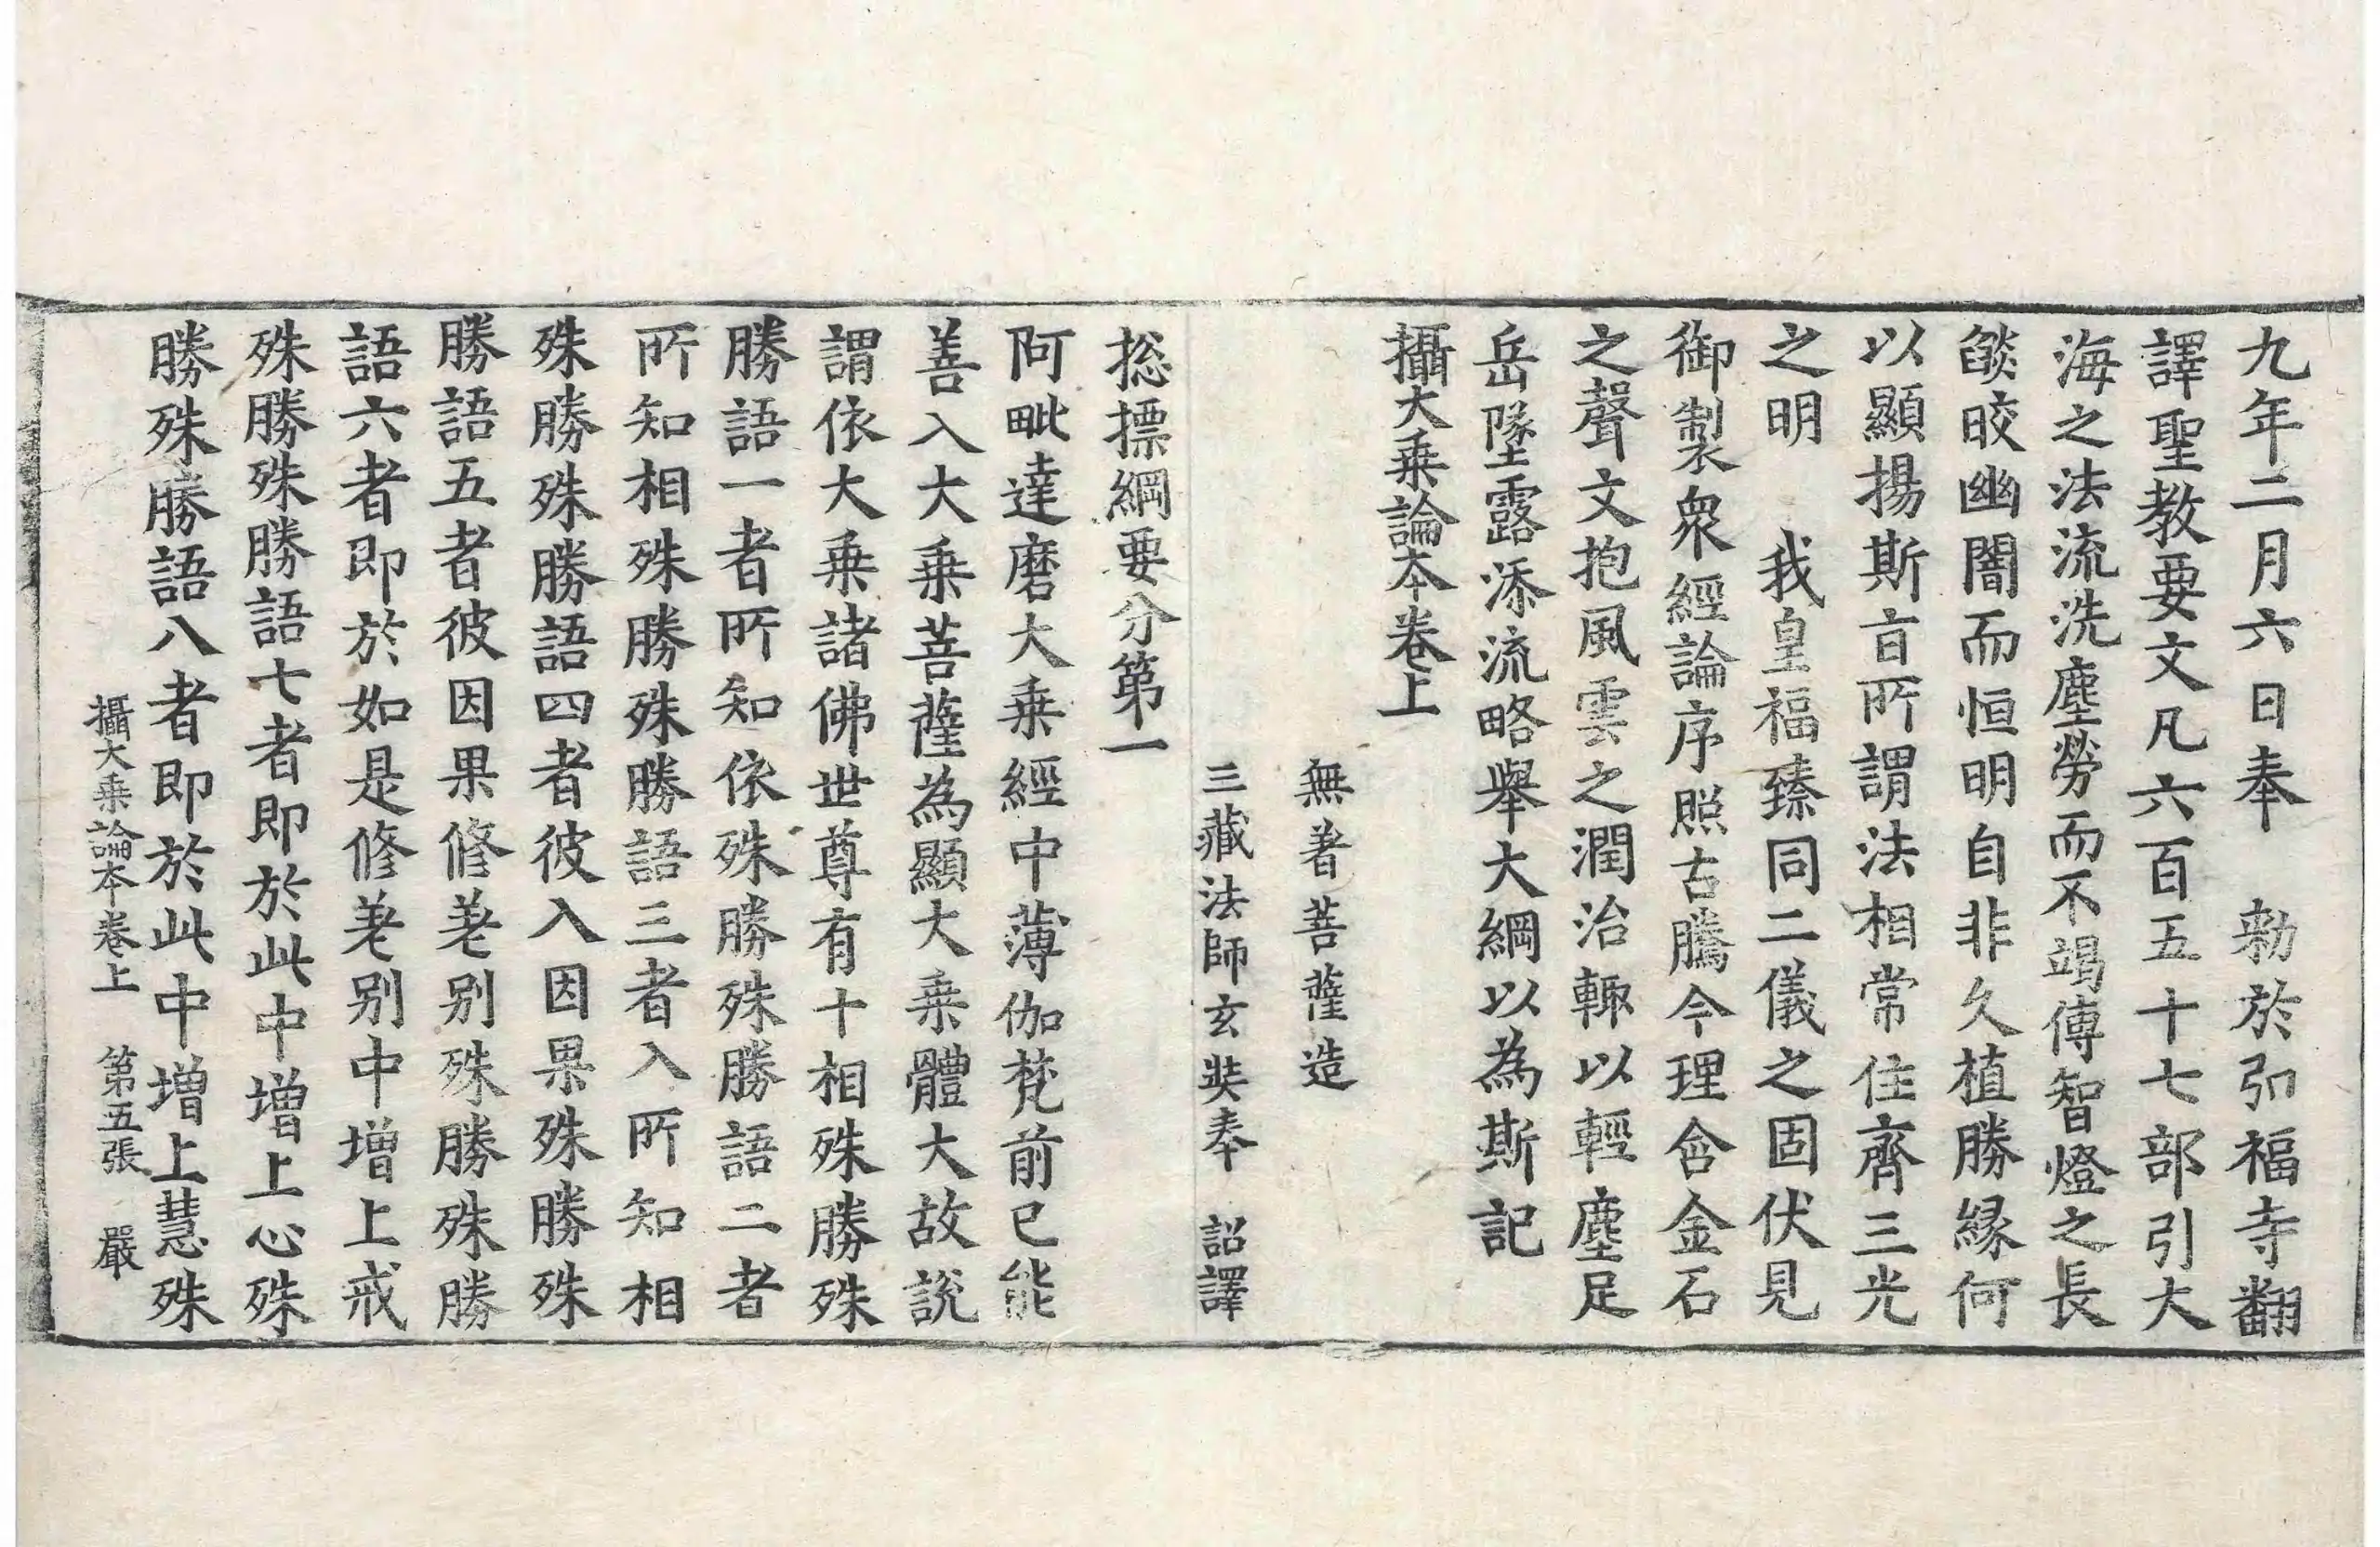 九年二月六日奉　勑於弘福寺翻
譯聖教要文凡六百五十七部引大
海之法流洗塵勞而不竭傳智燈之長
燄皎幽闇而恒明自非久植勝緣何
以顯揚斯㫖所謂法相常住齊三光
之明　我皇福臻同二儀之固伏見
御製衆經論序照古騰今理含金石
之聲文抱風雲之潤治輙以輕塵足
岳墜露添流略舉大綱以為斯記
攝大乗論本卷上
無著菩薩造
三藏法師玄奘奉　詔譯
捴摽綱要分第一
阿毗達磨大乗經中薄伽梵前已能
善入大乗菩薩為顯大乗體大故說
謂依大乗諸佛世尊有十相殊勝殊
勝語一者所知依殊勝殊勝語二者
所知相殊勝殊勝語三者入所知相
殊勝殊勝語四者彼入因果殊勝殊
勝語五者彼因果修差别殊勝殊勝
語六者即於如是修差别中增上戒
殊勝殊勝語七者即於此中增上心殊
勝殊勝語八者即於此中增上慧殊
攝大乗論本卷上　第五張　嚴